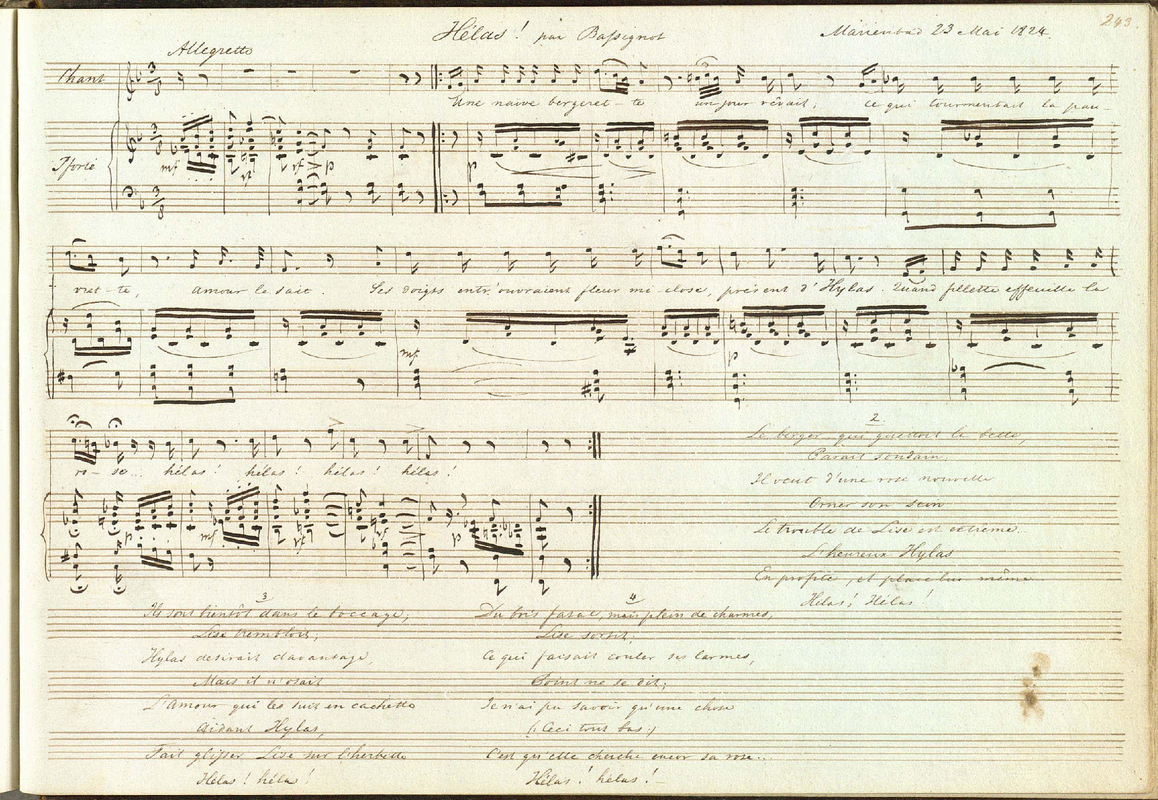 243.
Hélas! par Bassignot Marienbad 23 Mai 1824.
Allegretto
Chant
Une naive bergeret-te un jour rêvait; ce qui tourmentait la pau-
Pforte
mf
p
vret-te, amour le sait. Ses doigts entr'ouvraient fleur mi-close, présent d'Hylas. Quand fillette effeuille la
mf p
ro-se... hélas! hélas! hélas! hélas!
p mf p
2.
Le berger qui guettoit la belle,
Parait soudain,
Il veut d'une rose nouvelle
Orner son sein
Le trouble de Lise est extrème
L'heureux Hylas
En profite, et place lui même
Hélas! Hélas!
3
Ils sont bientôt dans le boccage,
Lise trembloit,
Hylas desirait davantage,
Mais il n'osait
L'amour qui les suit en cachette
Aidant Hylas,
Fait glisser Lise sur l'herbette
Hélas! hélas!
4
Du bois fatal, mais plein de charmes,
Lise sortit,
Ce qui faisait couler ses larmes,
Point ne se dit;
Je n'ai pu savoir qu'une chose
(: Ceci tout bas :)
C'est qu'elle cherche encor sa rose...
Hélas! hélas! -